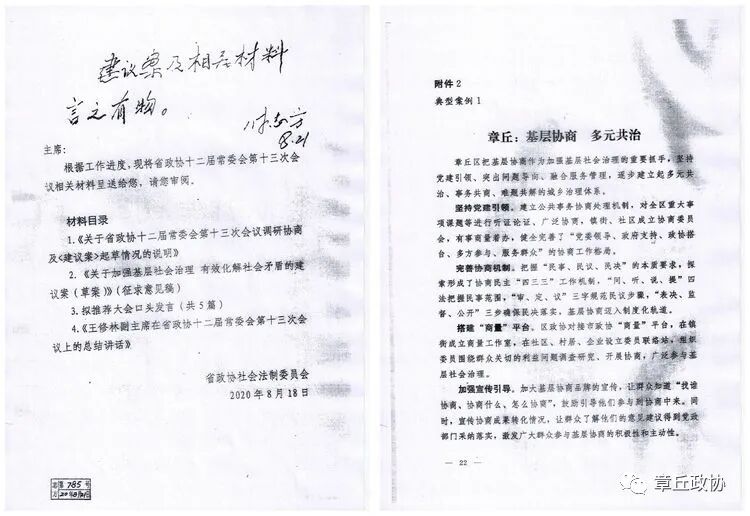 建议案及相应材料
言之有物。
8.21
主席:
根据工作进度,现将省政协十二届常委会第十三次会
议相关材料呈送给您,请您审阅。
材料目录
1.《关于省政协十二届常委会第十三次会议调研协商
及<建议案>起草情况的说明》
2.《关于加强基层社会治理 有效化解社会矛盾的建
议案(草案)》(征求意见稿)
3.拟推荐大会口头发言(共5篇)
4.《王修林副主席在省政协十二届常委会第十三次会
议上的总结讲话》
省政协社会法制委员会
2020年8月18日
第 785 号
附件2
典型案例1
章丘:基层协商 多元共治
章丘区把基层协商作为加强基层社会治理的重要抓手,坚持
党建引领、突出问题导向、融合服务管理,逐步建立起多元共
治、事务共商、难题共解的城乡治理体系。
坚持党建引领。建立公共事务协商处理机制,对全区重大事
项课题等进行听证论证、广泛协商,镇街、社区成立协商委员
会,有事商量着办,健全完善了“党委领导、政府支持、政协搭
台、多方参与、服务群众”的协商工作格局。
完善协商机制。把握“民事、民议、民决”的本质要求,探
索形成了协商民主“四三三”工作机制,“问、听、说、提”四
法把握民事范围,“审、定、议”三字规范民议步骤,“表决、监
督、公开”三步确保民决落实,基层协商迈入制度化轨道。
搭建“商量”平台。区政协对接市政协“商量”平台,在镇
街成立商量工作室,在社区、村居、企业设立委员联络站,组织
委员围绕群众关切的利益问题调查研究、开展协商,广泛参与基
层社会治理。
加强宣传引导。加大基层协商品牌的宣传,让群众知道“找谁
协商、协商什么、怎么协商”,鼓励引导他们参与到协商中来。同
时,宣传协商成果转化情况,让群众了解他们的意见建议得到党政
部门采纳落实,激发广大群众参与基层协商的积极性和主动性。
— 22 —
章丘政协